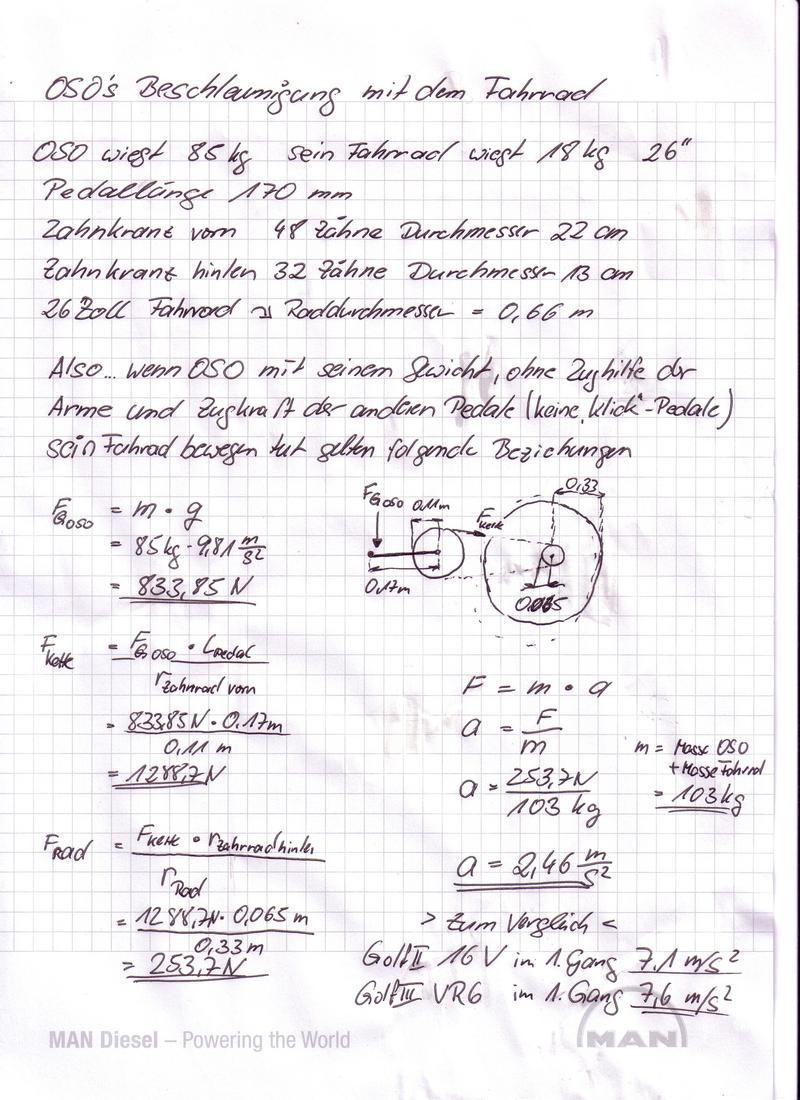 OSO's Beschleunigung mit dem Fahrrad
OSO wiegt 85 kg sein Fahrrad wiegt 18 kg 26"
Pedallänge 170 mm
Zahnkranz vorn 48 Zähne Durchmesser 22 cm
Zahnkranz hinten 32 Zähne Durchmesser 13 cm
26 Zoll Fahrrad ↘ Raddurchmesser = 0,66 m
Also... wenn OSO mit seinem Gewicht, ohne Zughilfe der
Arme und Zugkraft der anderen Pedale (keine „Klick"-Pedale)
sein Fahrad bewegen tut gelten folgende Beziehungen
F_G OSO = m · g
= 85 kg · 9,81 m/s²
= 833,85 N
F_G OSO 0,11m F_Kette 0,33
0,17m 0,065
F_Kette = F_G OSO · L_Pedal / r_Zahnrad vorn
= 833,85 N · 0,17m / 0,11 m
= 1288,7 N
F_Rad = F_Kette · r_Zahnrad hinten / r_Rad
= 1288,7N · 0,065 m / 0,33 m
= 253,7 N
F = m · a
a = F / m
a = 253,7N / 103 kg
m = Masse OSO
+ Masse Fahrrad
= 103 kg
a = 2,46 m/s²
> Zum Vergleich <
Golf II 16 V im 1. Gang 7,1 m/s²
Golf III VR6 im 1. Gang 7,6 m/s²
MAN Diesel – Powering the World
MAN